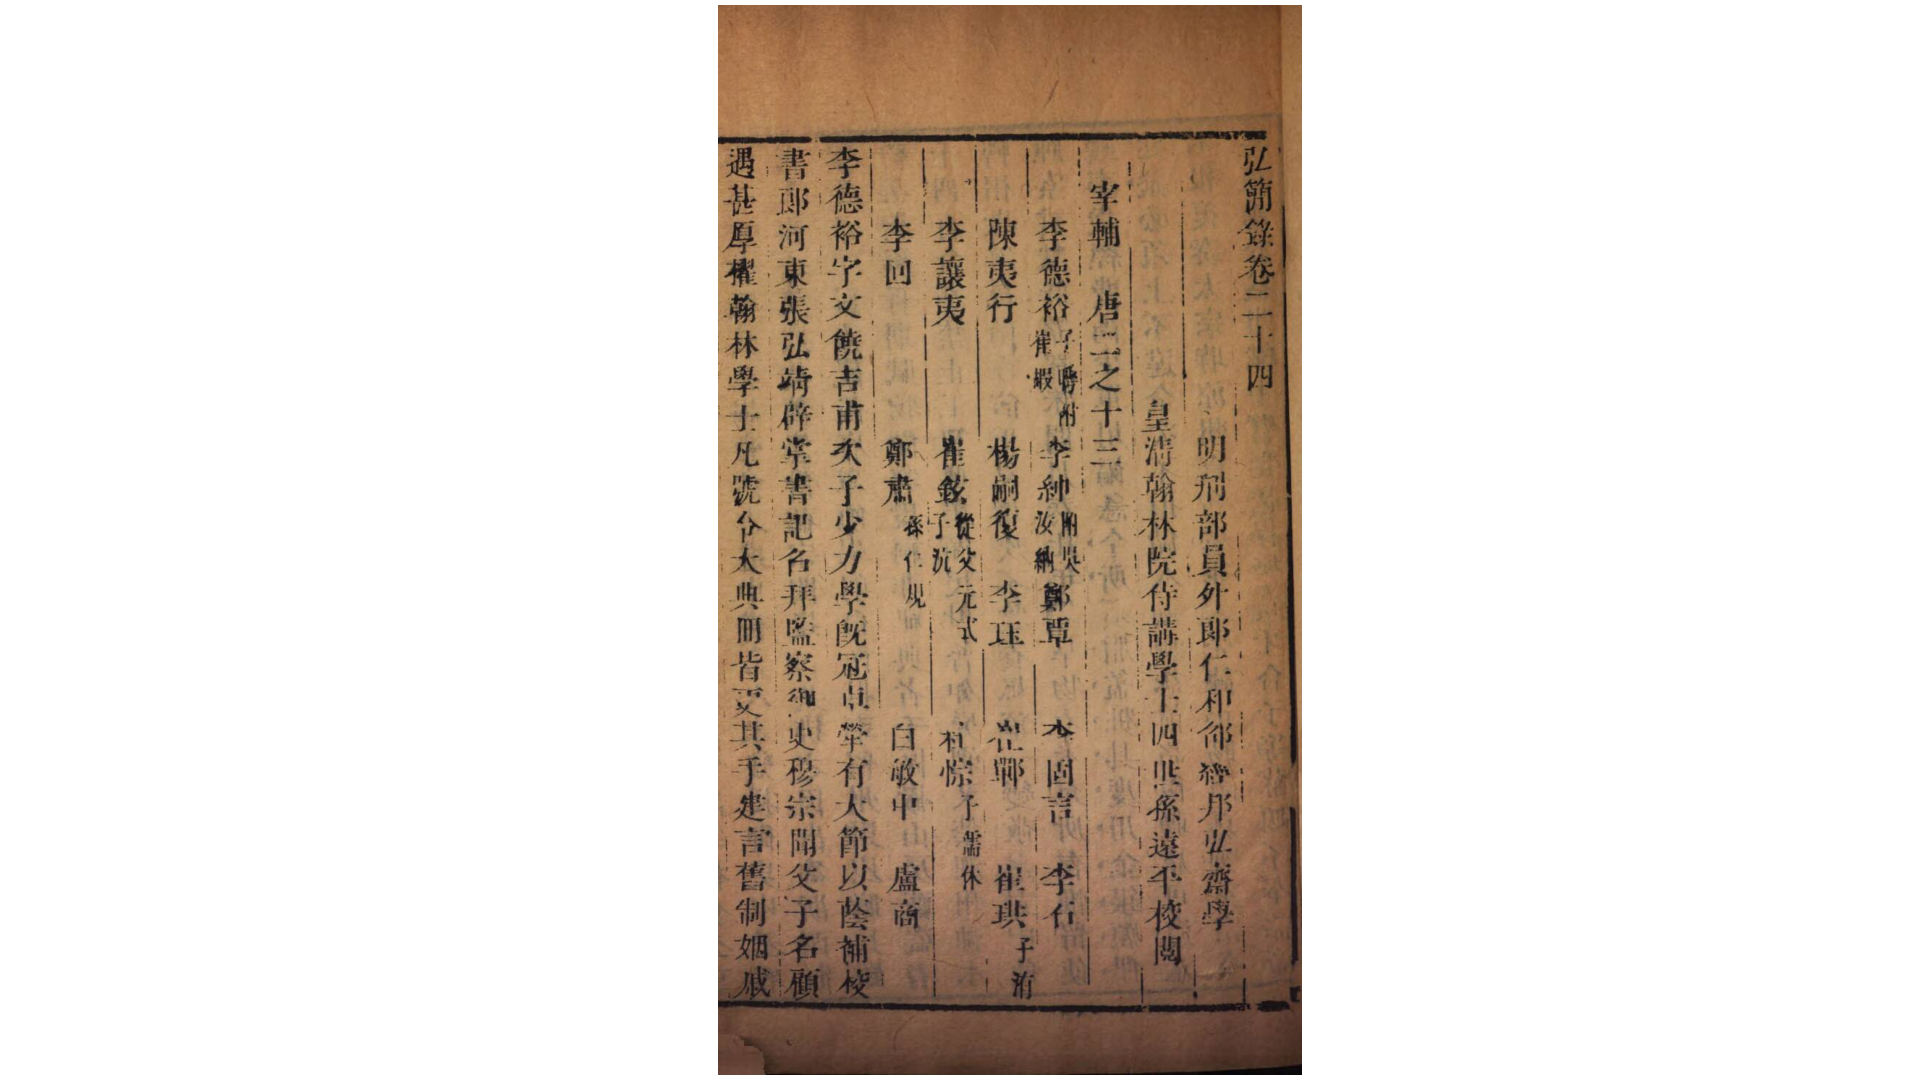 弘簡錄卷二十四
明刑部員外郎仁和邵經邦弘齋學
皇清翰林院侍講學士四世孫遠平校閱
宰輔 唐二之十三
李德裕 子燁附 崔嘏 李紳 附吳汝納 鄭覃 李固言 李石
陳夷行 楊嗣復 李珏 崔鄲 崔珙 子涓
李讓夷 崔鉉 從父元式 子沆 杜悰 子孺休
李回 鄭肅 孫仁規 白敏中 盧商
李德裕字文饒吉甫次子少力學既冠卓犖有大節以蔭補校
書郎河東張弘靖辟掌書記名拜監察御史穆宗聞父子名顧
遇甚厚擢翰林學士凡號令大典冊皆更其手建言舊制姻戚